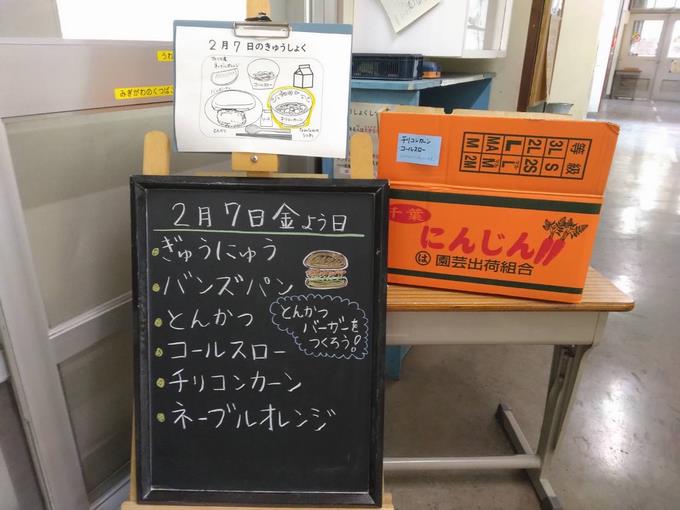 2月7日のきゅうしょく
コールスロー
チリコンカーン
とんかつ
みぎがわのくつば
2月7日金よう日
ぎゅうにゅう
バンズパン
とんかつ
コールスロー
チリコンカーン
ネーブルオレンジ
とんかつ
バーガーを
つくろう!
チリコンカーン
コールスロー
等級
3L S
2L 2S
L L
MA M
M 2M
千葉
にんじん
は園芸出荷組合